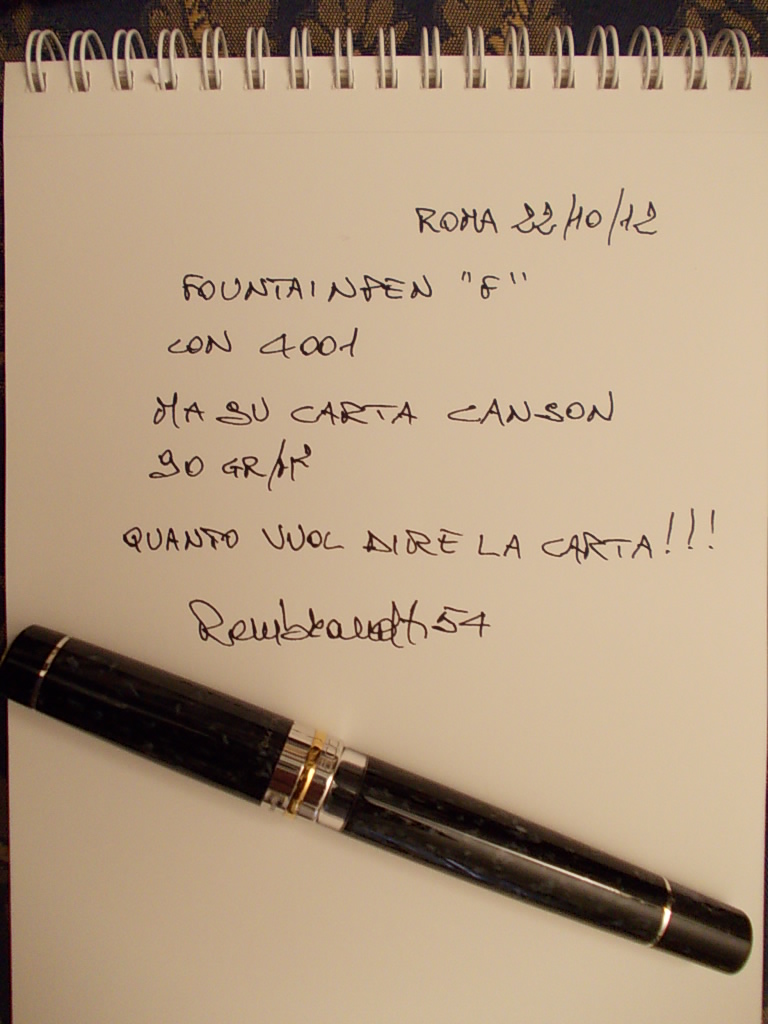 ROMA 22/10/12
FOUNTAINPEN "F"
CON 4001
MA SU CARTA CANSON
90 GR/M²
QUANTO VUOL DIRE LA CARTA!!!
Rembrandt54